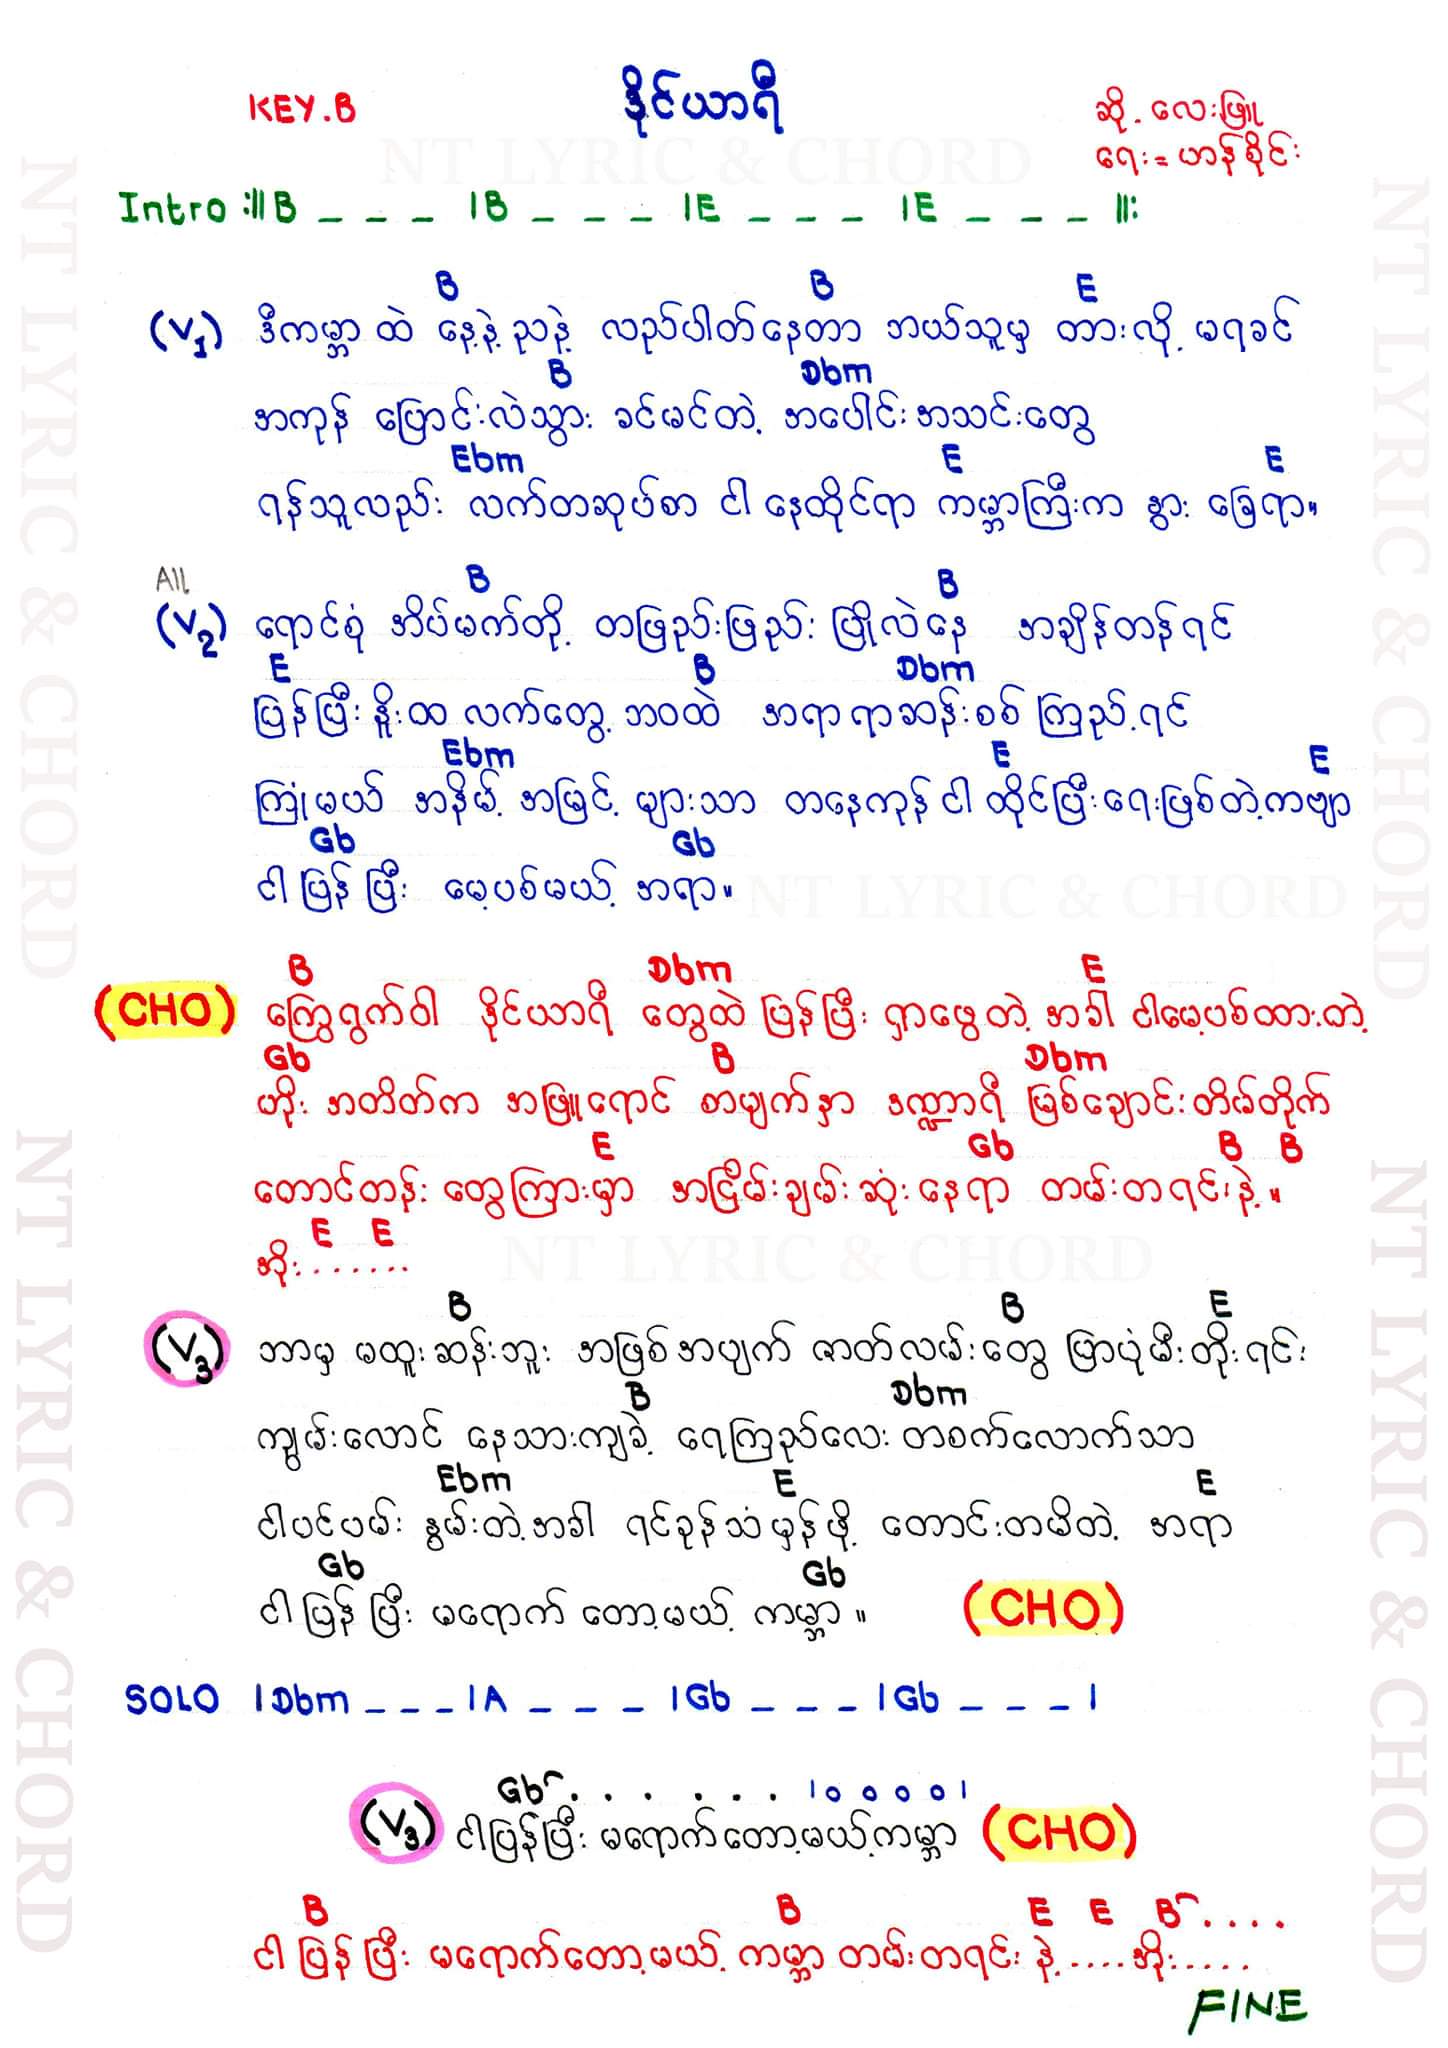 KEY.B
ဒိုင်ယာရီ
ဆို. လေးဖြူ
ရေး = ဟန်စိုင်း
NT LYRIC & CHORD
Intro :|| B _ _ _ | B _ _ _ | E _ _ _ | E _ _ _ ||:
B B E
(V1) ဒီကမ္ဘာ ထဲ နေ့နဲ့ ညနဲ့ လည်ပါတ်နေတာ ဘယ်သူမှ တားလို့ မရခင်
B Dbm
အကုန် ပြောင်းလဲသွား ခင်မင်တဲ့ အပေါင်းအသင်းတွေ
Ebm E E
ရန်သူလည်း လက်တဆုပ်စာ ငါ နေထိုင်ရာ ကမ္ဘာကြီးက နွား ခြေရာ။
All
B B
(V2) ရောင်စုံ အိပ်မက်တို့ တဖြည်းဖြည်း ပြိုလဲနေ အချိန်တန်ရင်
E B Dbm
ပြန်ပြီး နိုးထ လက်တွေ့ ဘဝထဲ အရာရာဆန်းစစ် ကြည့်ရင်
Ebm E E
ကြုံမယ် အနိမ့် အမြင့် များသာ တနေကုန် ငါ ထိုင်ပြီးရေးဖြစ်တဲ့ကဗျာ
Gb Gb
ငါ ပြန် ပြီး မေ့ပစ်မယ့် အရာ။
NT LYRIC & CHORD
B Dbm E
(CHO) ကြွေရွက်ဝါ ဒိုင်ယာရီ တွေထဲ ပြန်ပြီး ရှာဖွေတဲ့ အခါ ငါမေ့ပစ်ထားတဲ့
Gb B Dbm
ဟိုး အတိတ်က အဖြူရောင် စာမျက်နှာ ဒဏ္ဍာရီ မြစ်ချောင်းတိမ်တိုက်
E Gb B B
တောင်တန်း တွေကြားမှာ အငြိမ်းချမ်းဆုံး နေရာ တမ်းတရင်းနဲ့ ။
E E
အိုး.......
NT LYRIC & CHORD
B B E
(V3) ဘာမှ မထူးဆန်းဘူး အဖြစ်အပျက် ဇာတ်လမ်းတွေ ပြာပုံမီးတိုးရင်း
B Dbm
ကျွမ်းလောင် နေသားကျခဲ့ ရေကြည်လေး တစက်လောက်သာ
Ebm E E
ငါပင်ပမ်း နွမ်းတဲ့အခါ ရင်ခုန်သံမှန်ဖို့ တောင်းတမိတဲ့ အရာ
Gb Gb
ငါ ပြန် ပြီး မရောက် တော့မယ့် ကမ္ဘာ ။ (CHO)
SOLO | Dbm _ _ _ | A _ _ _ | Gb _ _ _ | Gb _ _ _ |
Gb . . . . . . | o o o o |
(V3) ငါပြန်ပြီး မရောက်တော့မယ့်ကမ္ဘာ (CHO)
B B E E B ....
ငါ ပြန် ပြီး မရောက်တော့မယ့် ကမ္ဘာ တမ်းတရင်း နဲ့ ....အိုး.....
FINE
NT LYRIC & CHORD
NT LYRIC & CHORD
NT LYRIC & CHORD
NT LYRIC & CHORD